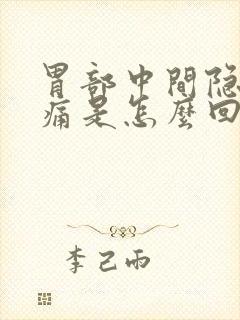 胃部中間隐
痛是怎麼回
李己雨